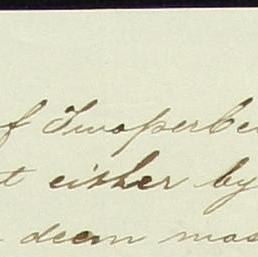 of Two per Ce
t either by
deem mos